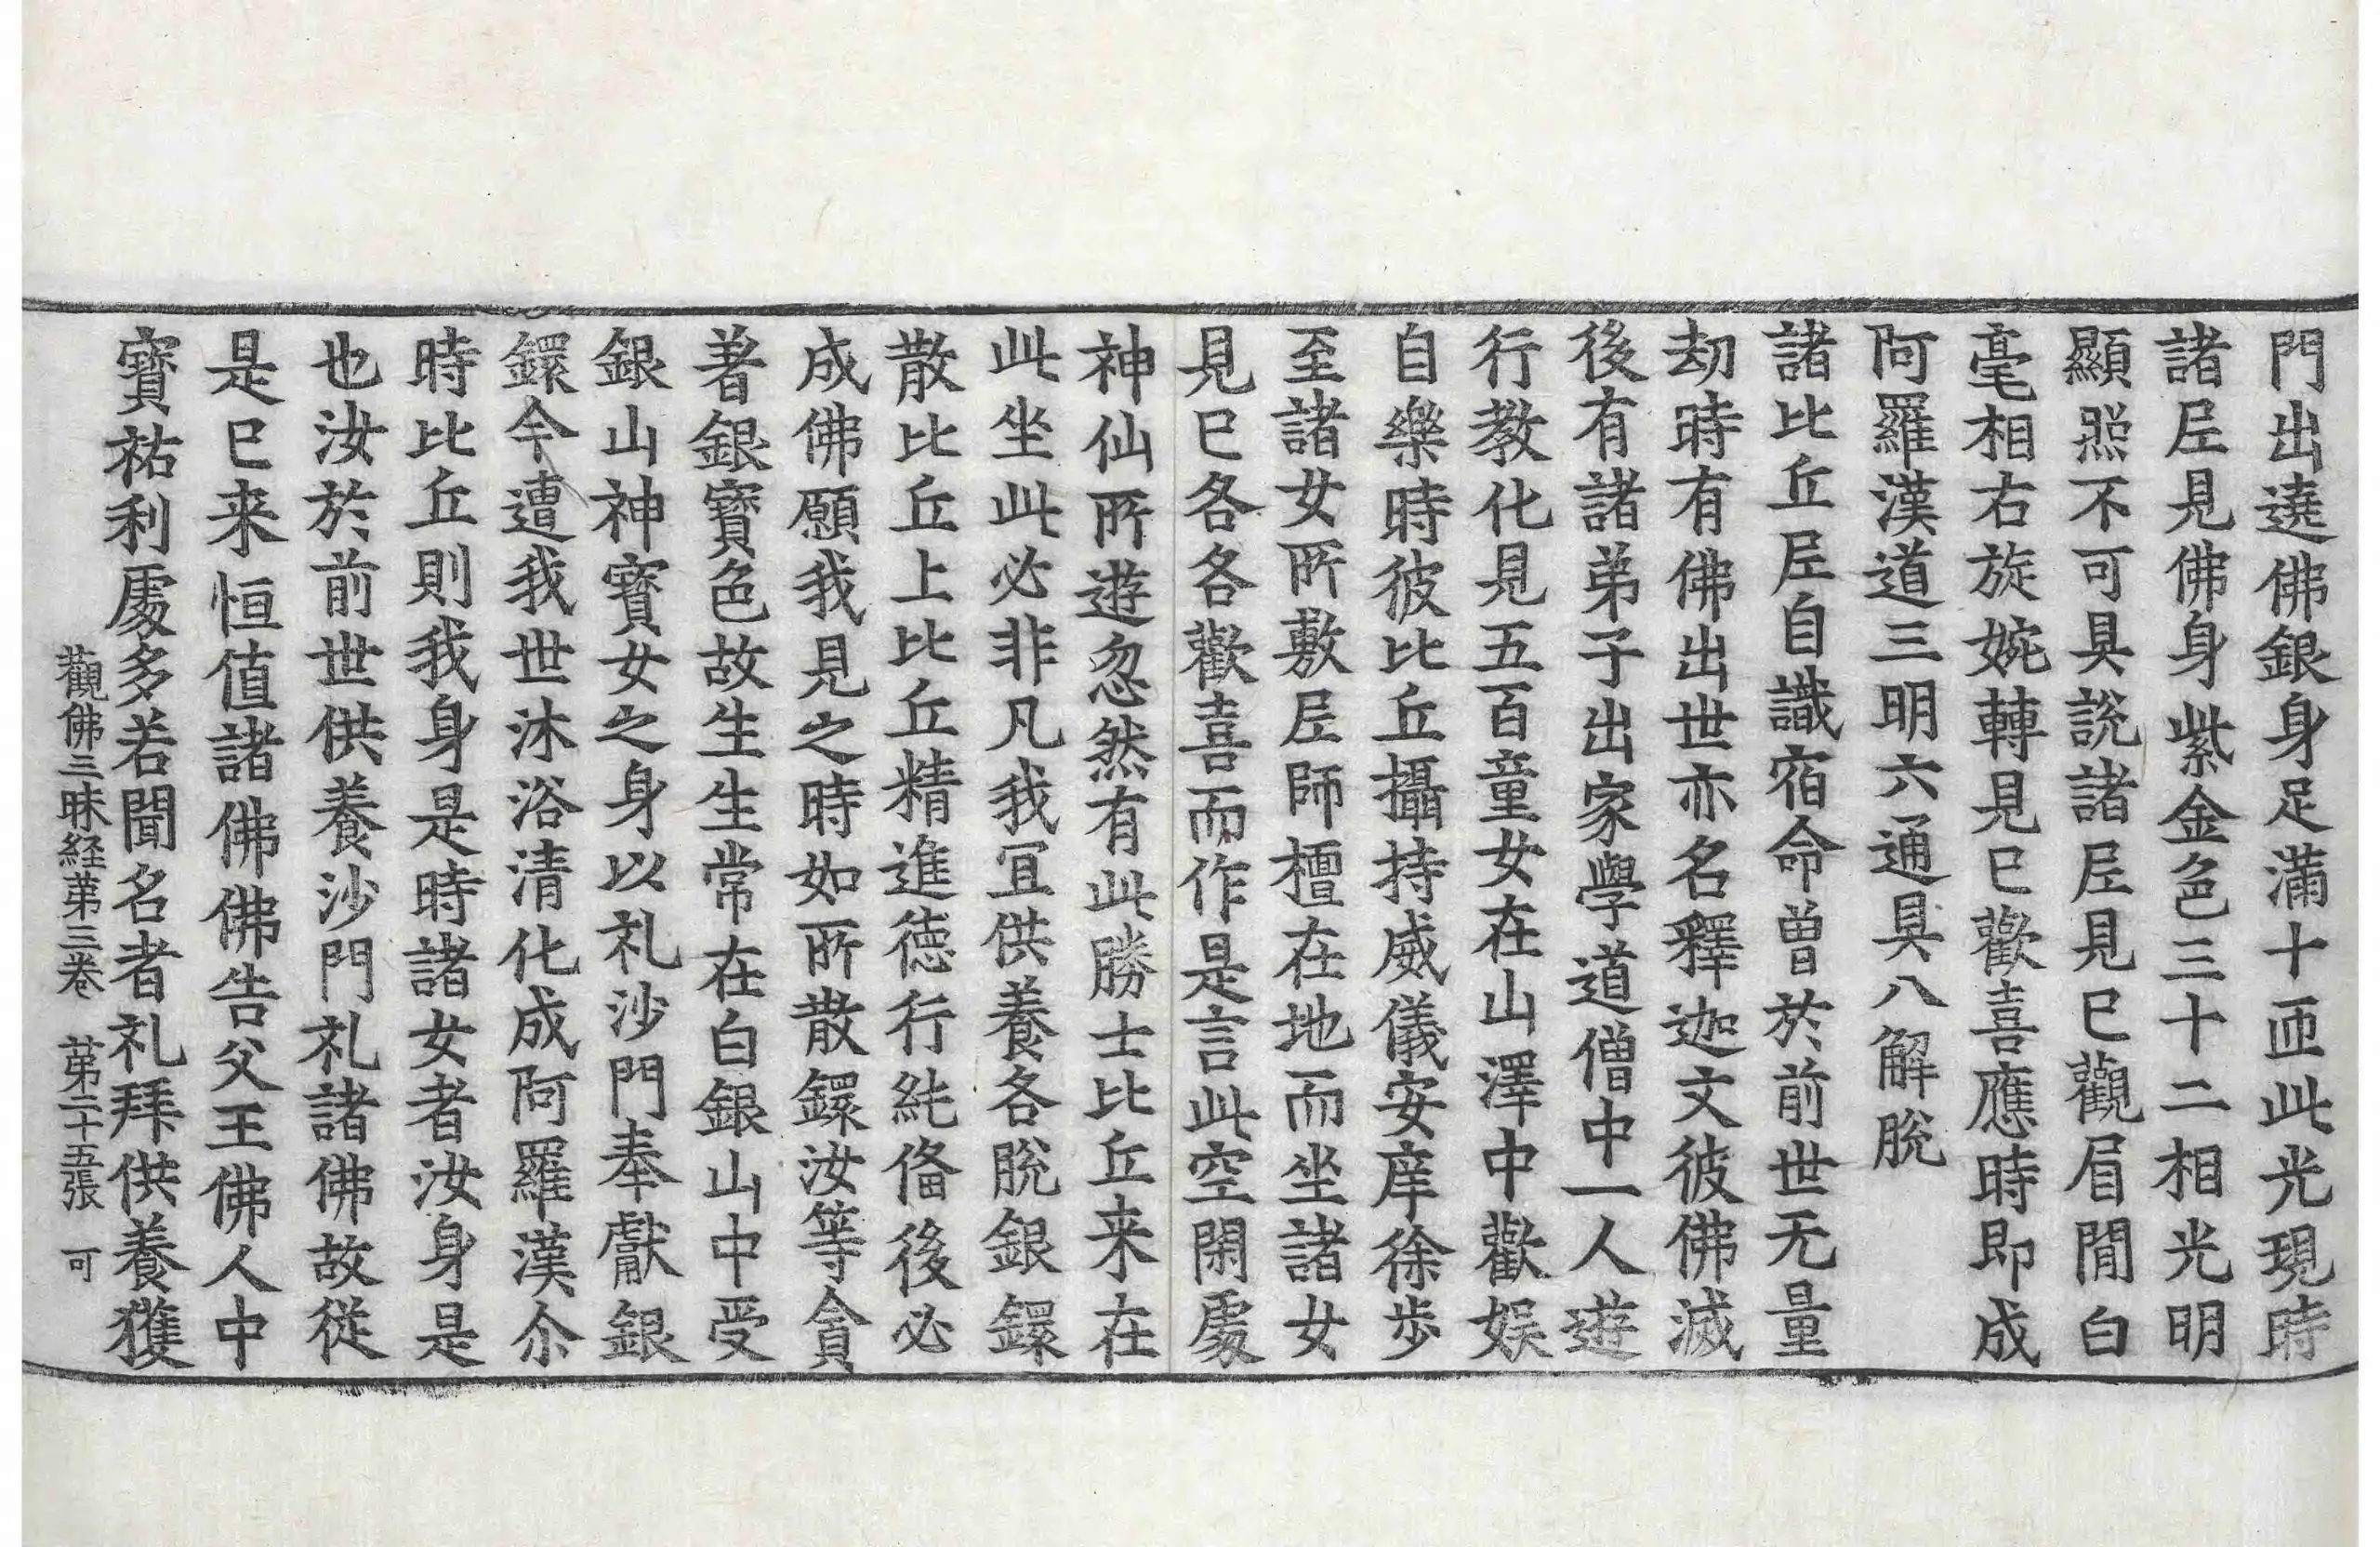 門出遶佛銀身足滿十匝此光現時
諸𡰱見佛身紫金色三十二相光明
顯照不可具說諸𡰱見已觀眉間白
毫相右旋婉轉見已歡喜應時即成
阿羅漢道三明六通具八解脫
諸比丘𡰱自識宿命曾於前世无量
劫時有佛出世亦名釋迦文彼佛滅
後有諸弟子出家學道僧中一人遊
行教化見五百童女在山澤中歡娛
自樂時彼比丘攝持威儀安庠徐步
至諸女所敷𡰱師檀在地而坐諸女
見已各各歡喜而作是言此空閑處
神仙所遊忽然有此勝士比丘来在
此坐此必非凡我冝供養各脫銀鐶
散比丘上比丘精進德行純俻後必
成佛願我見之時如所散鐶汝等貪
著銀寶色故生生常在白銀山中受
銀山神寶女之身以礼沙門奉獻銀
鐶今遭我世沐浴清化成阿羅漢尒
時比丘則我身是時諸女者汝身是
也汝於前世供養沙門礼諸佛故從
是已来恒值諸佛佛告父王佛人中
寶祐利處多若聞名者礼拜供養獲
觀佛三昧経苐三卷　苐二十五張　可